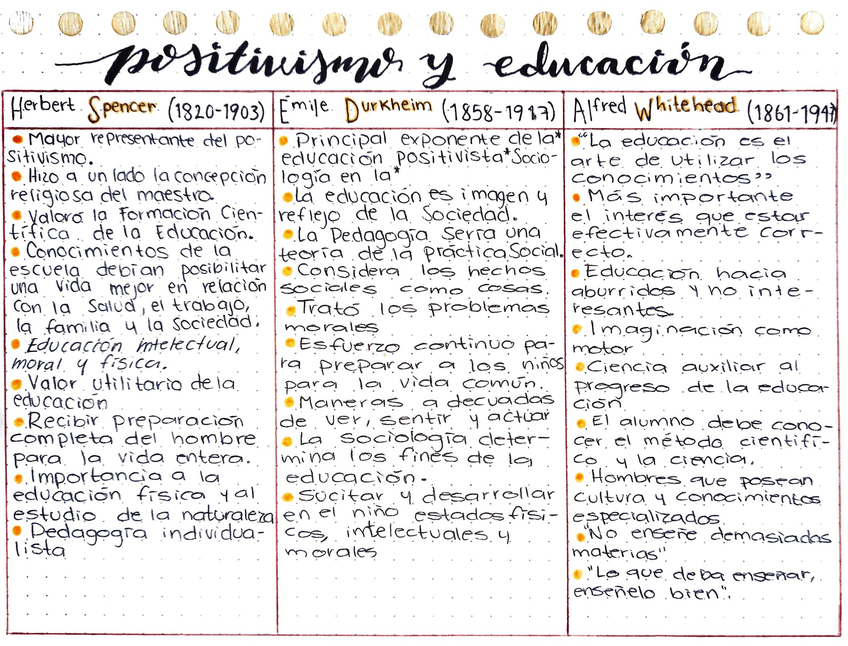 positivismo y educación
Herbert Spencer (1820-1903)
• Mayor representante del po-
sitivismo.
• Hizo a un lado la concepción
religiosa del maestro.
• Valoró la Formación Cien-
tífica de la Educación.
• Conocimientos de la
escuela debían posibilitar
una vida mejor en relación
con la salud, el trabajo,
la familia y la sociedad.
• Educación intelectual,
moral y física.
• Valor utilitario de la
educación
• Recibir preparación
completa del hombre
para la vida entera.
• Importancia a la
educación física y al
estudio de la naturaleza
• Pedagogía individua-
lista
Émile Durkheim (1858-1917)
• Principal exponente de la*
educación positivista*Socio-
logía en la*
• La educación es imagen y
reflejo de la Sociedad.
• La Pedagogía sería una
teoría de la práctica Social.
• Considera los hechos
sociales como cosas.
• Trató los problemas
morales
• Esfuerzo continuo pa-
ra preparar a los niños
para la vida común.
• Maneras adecuadas
de ver, sentir y actuar
• La sociología deter-
mina los fines de la
educación.
• Sucitar y desarrollar
en el niño estados físi-
cos, intelectuales y
morales
Alfred Whitehead (1861-1947)
• "La educación es el
arte de utilizar los
conocimientos"
• Más importante
el interés que estar
efectivamente corr-
ecto.
• Educación hacia
aburridos y no inte-
resantes.
• Imaginación como
motor
• Ciencia auxiliar al
progreso de la educa-
ción
• El alumno debe cono-
cer el método científi-
co y la ciencia.
• Hombres que posean
cultura y conocimientos
especializados
• "No enseñe demasiadas
materias"
• "Lo que deba enseñar,
enséñelo bien".